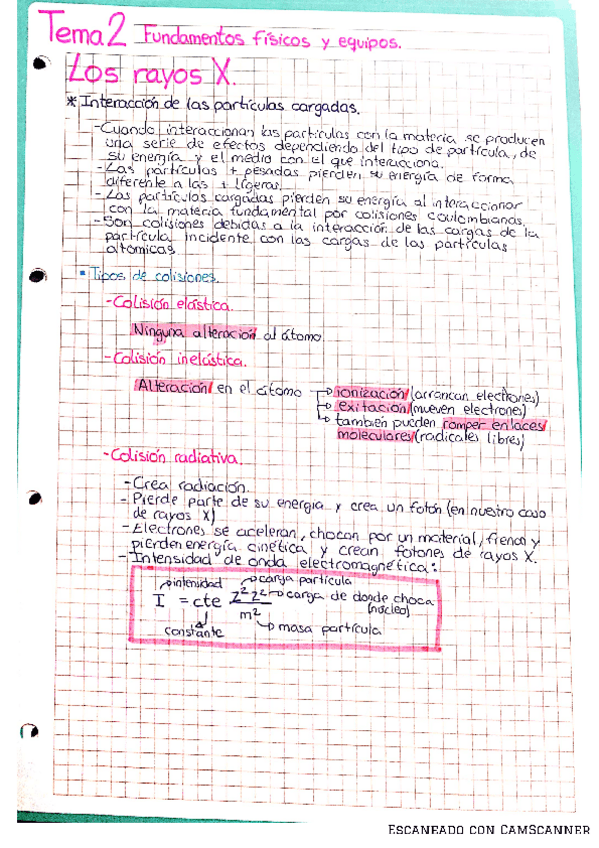 Tema 2 Fundamentos físicos y equipos.
Los rayos X.
* Interacción de las partículas cargadas.
- Cuando interaccionan las partículas con la materia se producen
una serie de efectos dependiendo del tipo de partícula, de
su energía y el medio con el que interacciona.
- Las partículas + pesadas pierden su energía de forma
diferente a las + ligeras.
- Las partículas cargadas pierden su energía al interaccionar
con la materia fundamental por colisiones coulombianas.
- Son colisiones debidas a la interacción de las cargas de la
partícula incidente con las cargas de las partículas
atómicas.
▪ Tipos de colisiones.
- Colisión elástica.
Ninguna alteración al átomo.
- Colisión inelástica.
Alteración en el átomo → ionización (arrancan electrones)
→ exitación (mueven electrones)
→ también pueden romper enlaces
moleculares (radicales libres)
- Colisión radiativa.
- Crea radiación.
- Pierde parte de su energía y crea un fotón (en nuestro caso
de rayos X)
- Electrones se aceleran, chocan por un material, frenan y
pierden energía cinética y crean fotones de rayos X.
- Intensidad de onda electromagnética:
→ intensidad → carga partícula
I = cte z²z² → carga de donde choca
(núcleo)
m² → masa partícula
constante
ESCANEADO CON CAMSCANNER